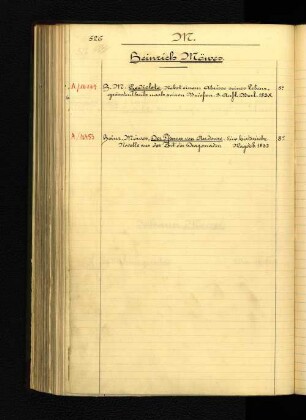 526 M.
Heinrich Möwes.
H. M. Gedichte. Nebst einem Abrisse seines Lebens, 8º
grösstentheils nach seinen Briefen. 3. Aufl. 1838.
Heinr. Möwes, Der Pfarrer von Andouse. Eine historische 8º
Novelle aus der Zeit der Dragonaden Magdeb. 1832